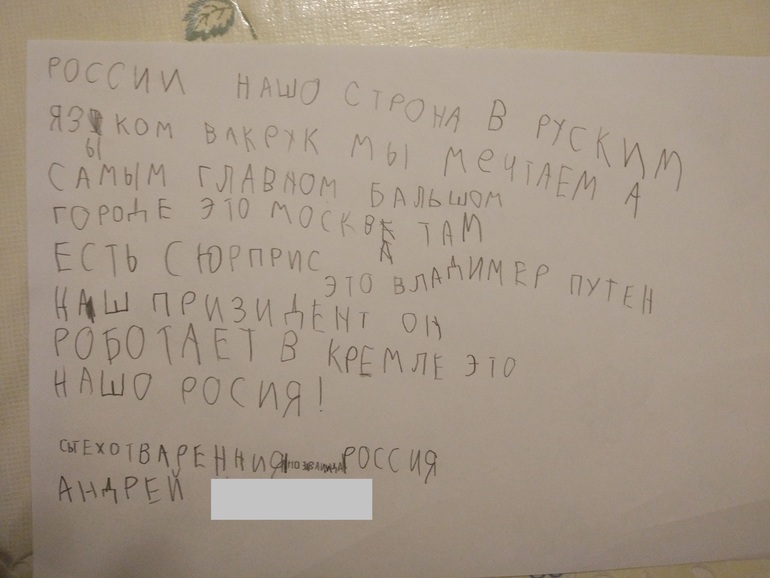 РОССИИ НАШО СТРОНА В РУСКИМ
ЯЗЫКОМ ВАКРУК МЫ МЕЧТАЕМ А
САМЫМ ГЛАВНОМ БАЛЬШОМ
ГОРОДЕ ЭТО МОСКВА ТАМ
ЕСТЬ СЮРПРИС ЭТО ВЛАДИМЕР ПУТЕН
НАШ ПРИЗИДЕНТ ОН
РОБОТАЕТ В КРЕМЛЕ ЭТО
НАШО РОСИЯ!
СЫТЕХОТВАРЕННИЯ РОССИЯ
АНДРЕЙ